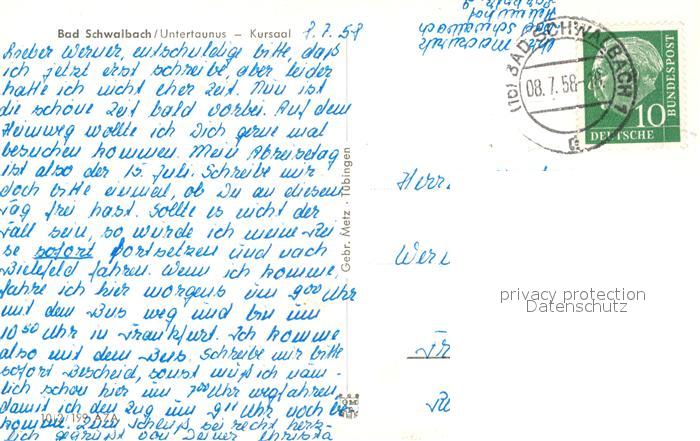 Bad Schwalbach/Untertaunus – Kursaal
7.7.58
Lieber Werner, entschuldige bitte, daß
ich jetzt erst schreibe, aber leider
hatte ich nicht eher Zeit. Nun ist
die schöne Zeit bald vorbei. Auf dem
Heimweg wollte ich Dich gerne mal
besuchen kommen. Mein Abreisetag
ist also der 15. Juli. Schreibe mir
doch bitte einmal, ob Du an diesem
Tag frei hast. Sollte es nicht der
Fall sein, so würde ich meine Rei
se sofort fortsetzen und nach
Bielefeld fahren. Wenn ich komme,
fahre ich hier morgens um 9 00 Uhr
mit dem Bus weg und bin um
10 50 Uhr in Frankfurt. Ich komme
also mit dem Bus. Schreibe mir bitte
sofort Bescheid, sonst muß ich näm-
lich schon hier um 7 00 Uhr wegfahren,
damit ich den Zug um 9 11 Uhr noch be-
komme. Zum Schluß sei recht herz-
lich gegrüßt von Deiner Christa
10/2/199 AZA
Gebr. Metz · Tübingen
Bad Schwalbach
(16) BAD SCHWALBACH 1
08.7.58
10
DEUTSCHE
BUNDESPOST
Herr
Wern
Fr
privacy protection
Datenschutz